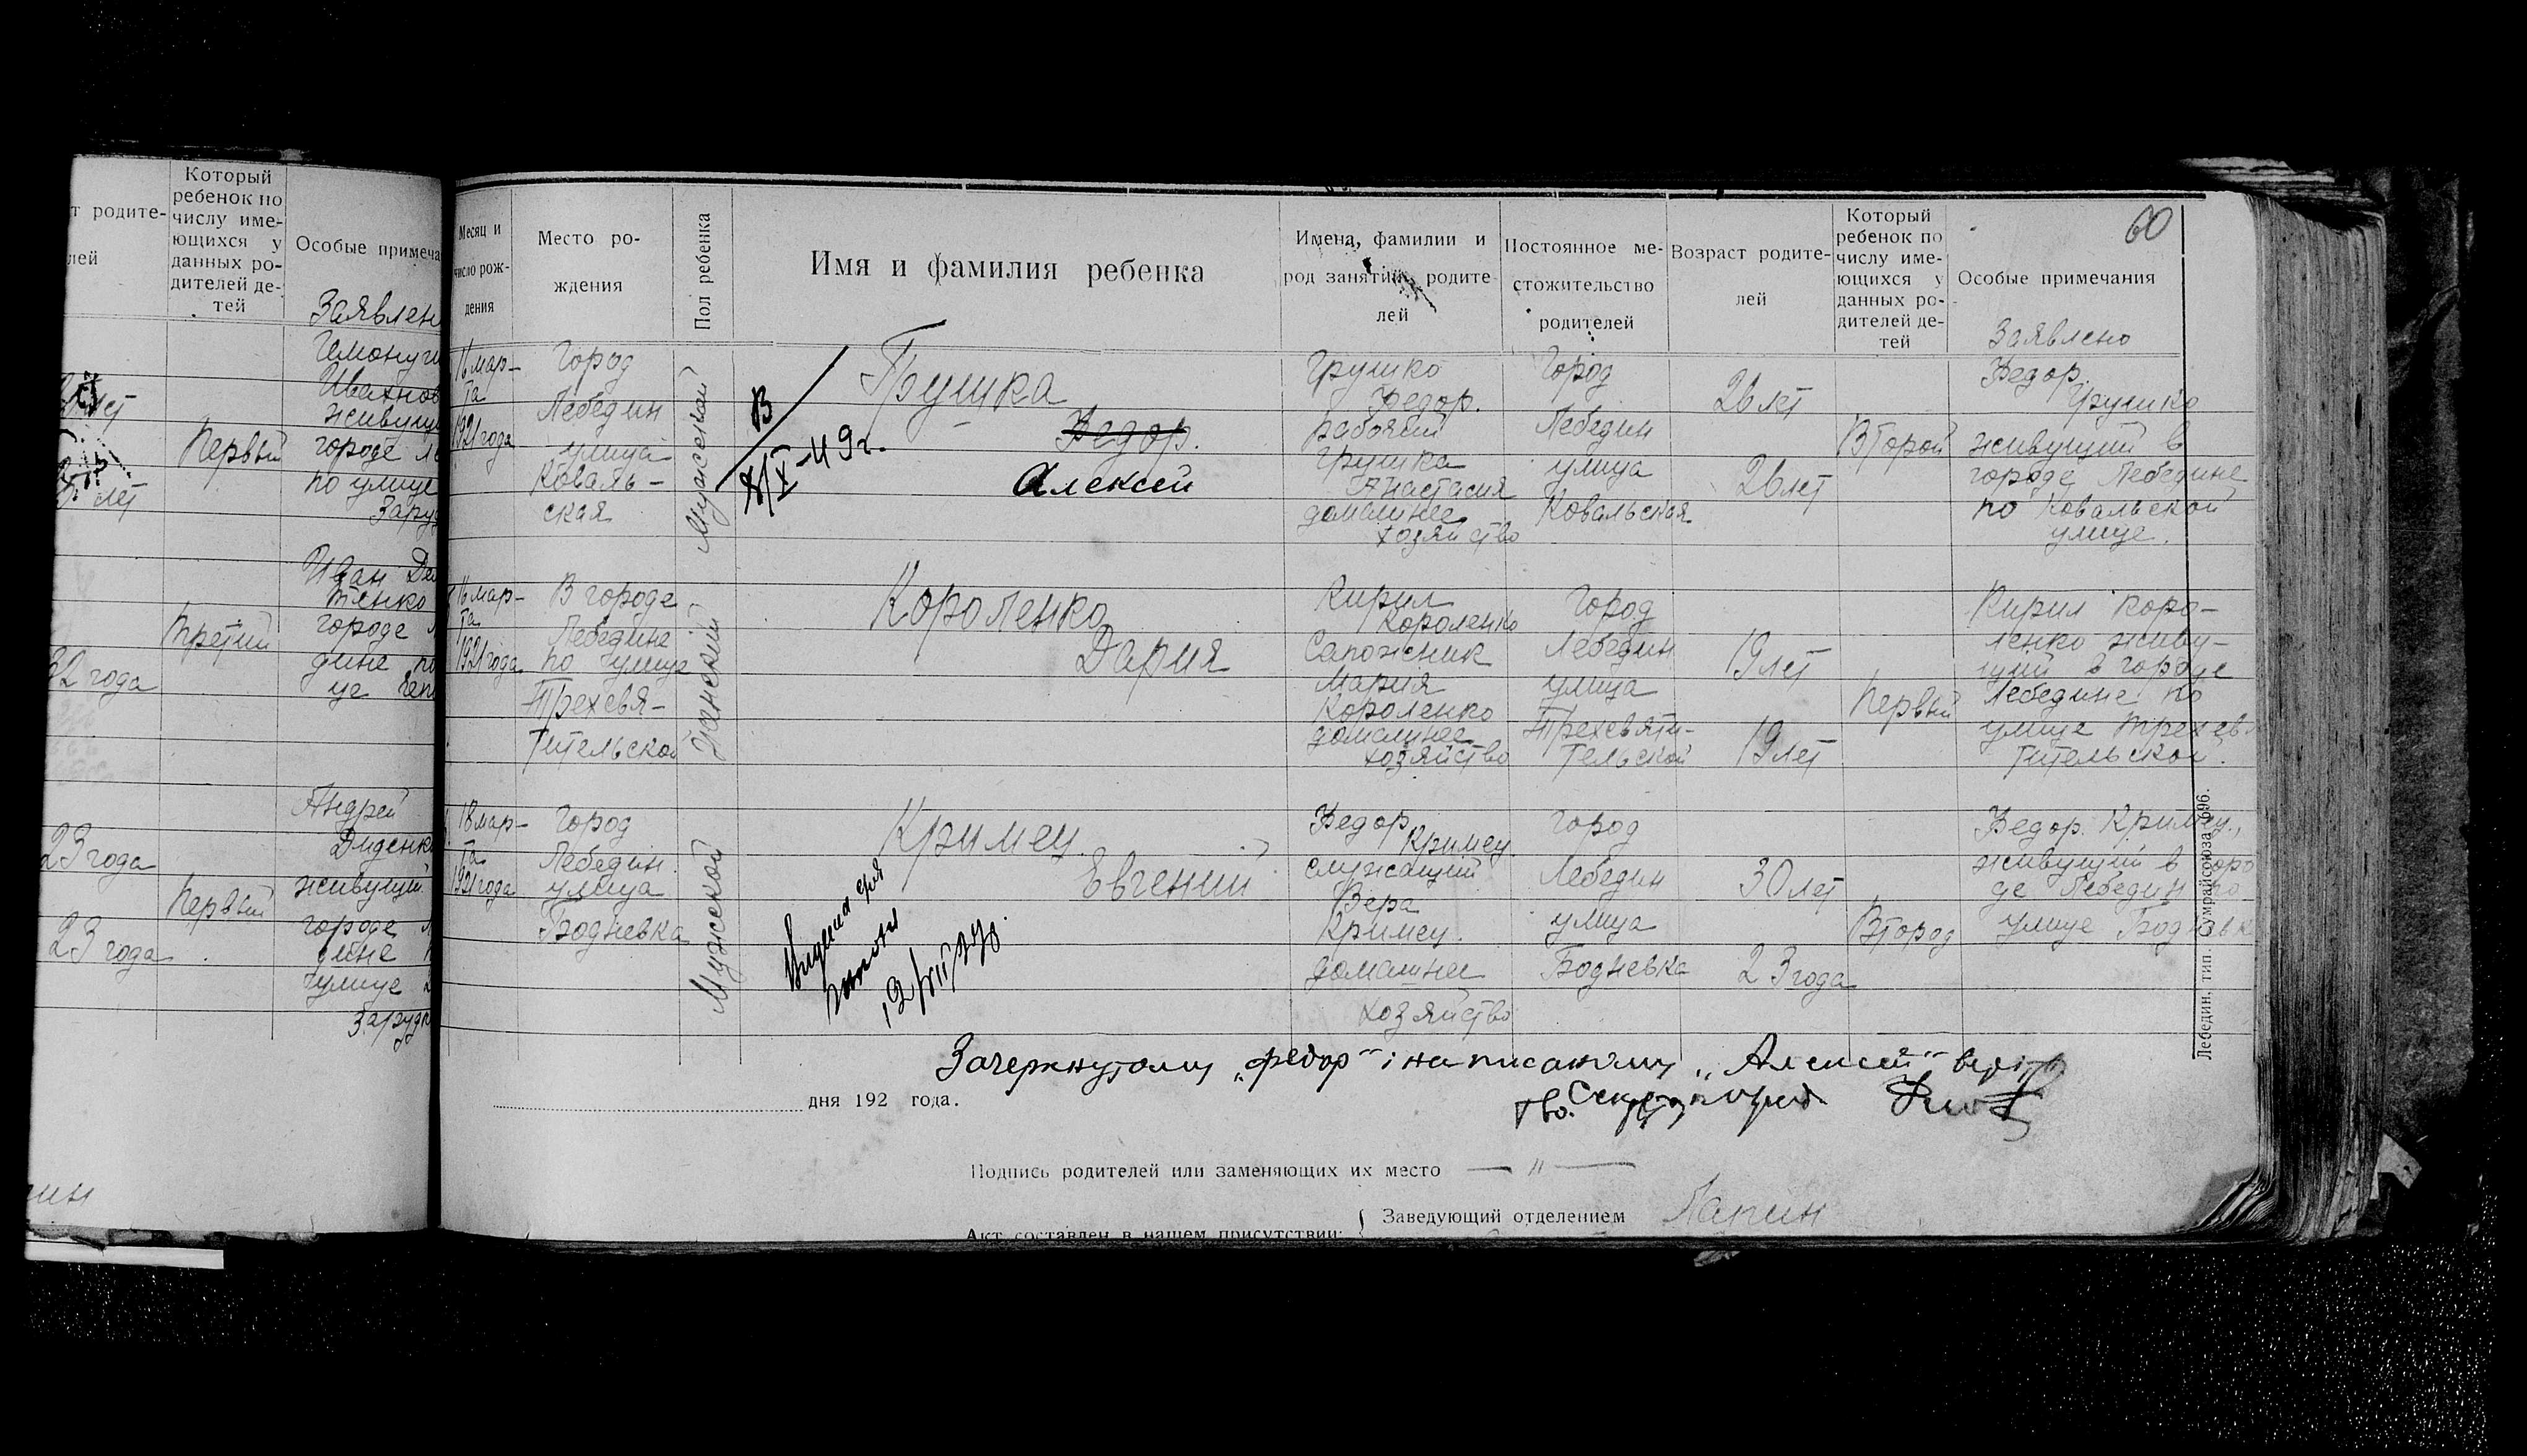 т родите-
лей
Который
ребенок по
числу име-
ющихся у
данных ро-
дителей де-
тей
Особые примеча
Заявлен
Ивахнов
живущи
Первый
городе
по улице
Заруд
лет
Иван
тенко
Третий
городе
дине по
це
32 года
Андрей
Диденк
23 года
живущий
Первый
городе
23 года
дине
улице
Заруд
Месяц и
число рож-
дения
Место ро-
ждения
Пол ребенка
Имя и фамилия ребенка
Имена, фамилии и
род занятий родите-
лей
Постоянное ме-
стожительство
родителей
Возраст родите-
лей
Который
ребенок по
числу име-
ющихся у
данных ро-
дителей де-
тей
Особые примечания
60
Заявлено
16 мар-
та
1921 года
Город
Лебедин
улица
Коваль-
ская
Мужеский
В
X-49 г.
Грушка
Федор.
Алексей
Грушко
Федор.
рабочий
Грушка
Анастасия
домашнее
хозяйство
Город
Лебедин
улица
Ковальская
26 лет
26 лет
Второй
Федор
Грушко
живущий в
городе Лебедине
по Ковальской
улице.
16 мар-
та
1921 года
В городе
Лебедине
по улице
Трехсвя-
тительской
Женский
Короленко
Дария
Кирил
Короленко
Сапожник
Мария
Короленко
домашнее
хозяйство
Город
Лебедин
улица
Трехсвяти-
тельской
19 лет
19 лет
Первый
Кирил Коро-
ленко живу-
щий в городе
Лебедине по
улице Трехсвя
тительской.
18 мар-
та
1921 года
Город
Лебедин
улица
Бодневка
Мужеской
Кримец
Евгений
Федор
Кримец
служащий
Вера
Кримец.
домашнее
хозяйство
город
Лебедин
улица
Бодневка
30 лет
23 года
Второй
Федор Кримец,
живущий в горо
де Лебедин по
улице Бодневк
Зачеркнутому „Федор" і написаному „Алексей" верить
дня 192 года.
Подпись родителей или заменяющих их место — " —
Заведующий отделением Лапин
Акт составлен в нашем присутствии:
Лебедин, тип. Сумрайсоюза 696.